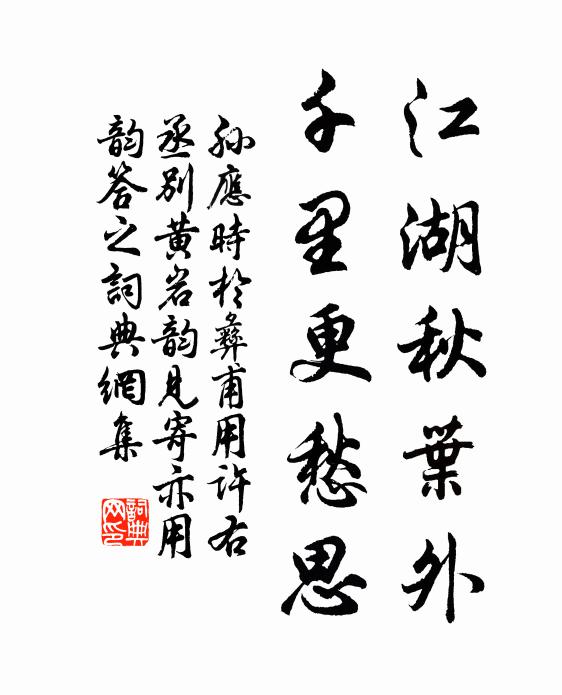 江湖秋葉外
千里更愁思
孫應時於彝甫用許右
丞別黄岩韵見寄亦用
韵答之詞典網集
詞典
网印